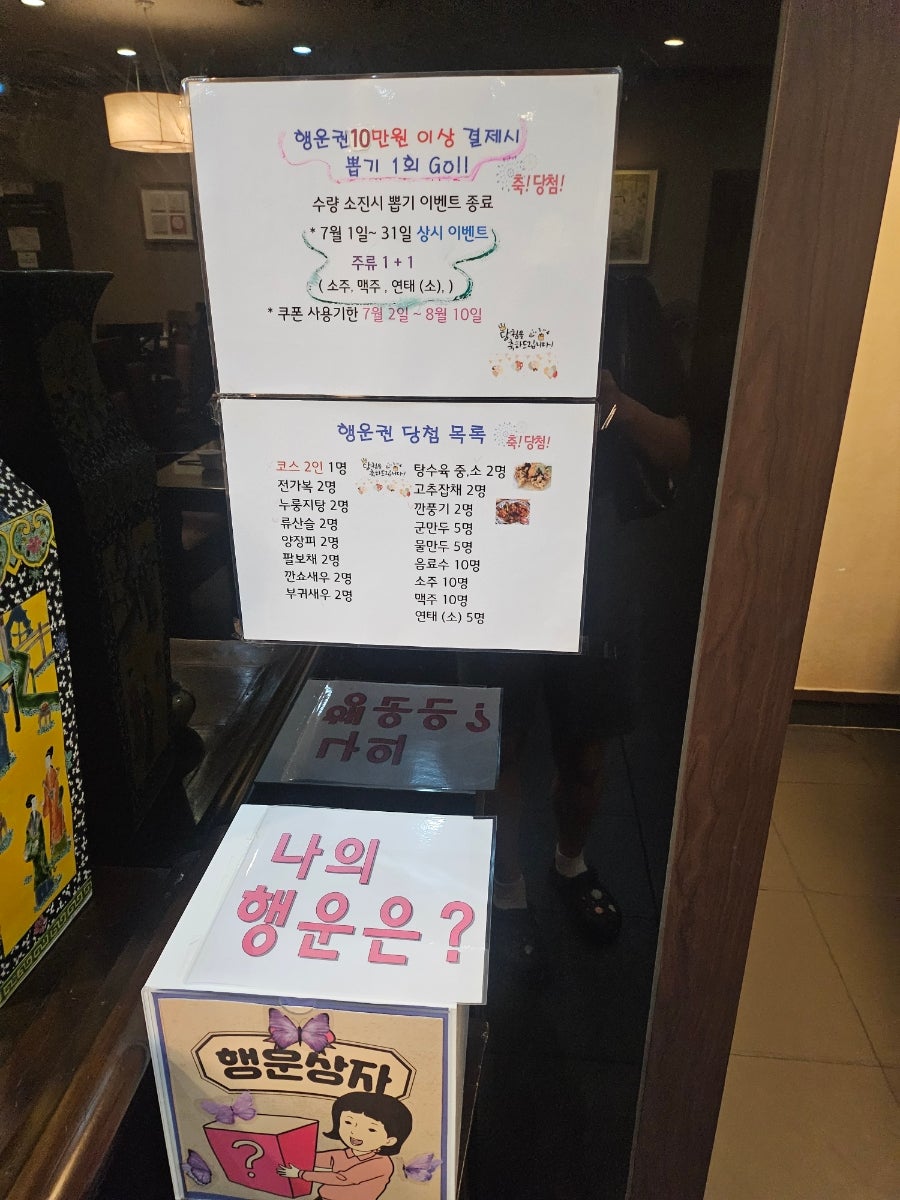 행운권10만원 이상 결제시
뽑기 1회 Go!!
축! 당첨!
수량 소진시 뽑기 이벤트 종료
* 7월 1일~ 31일 상시 이벤트
주류 1 + 1
( 소주, 맥주 , 연태 (소), )
* 쿠폰 사용기한 7월 2일 ~ 8월 10일
당첨을
축하드립니다!
행운권 당첨 목록
축! 당첨!
코스 2인 1명
전가복 2명
누룽지탕 2명
류산슬 2명
양장피 2명
팔보채 2명
깐쇼새우 2명
부귀새우 2명
당첨을
축하드립니다!
탕수육 중,소 2명
고추잡채 2명
깐풍기 2명
군만두 5명
물만두 5명
음료수 10명
소주 10명
맥주 10명
연태 (소) 5명
나의
행운은?
행운상자
?